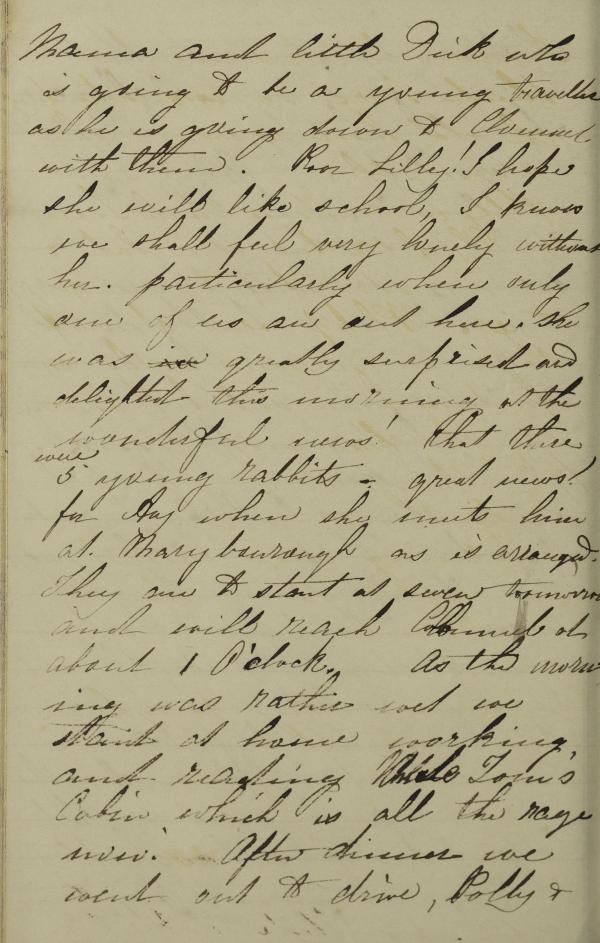 Mama and little Dick who
is going to be a young traveller
as he is going down to Clonmel
with them. Poor Lilly! I hope
she will like school, I know
we shall feel very lonely without
her. particularly when only
one of us are out here. She
was greatly surprised and
delighted this morning at the
wonderful news! that there
were
5 young rabbits - great news!
for Aug when she meets him
at Maryborough as is arranged.
They are to start at seven tomorrow
and will reach Clonmel at
about 1 O'clock. As the morn
ing was rather wet we
staid at home working,
and reading Uncle Tom's
Cabin which is all the rage
now. After dinner we
went out to drive, Polly &